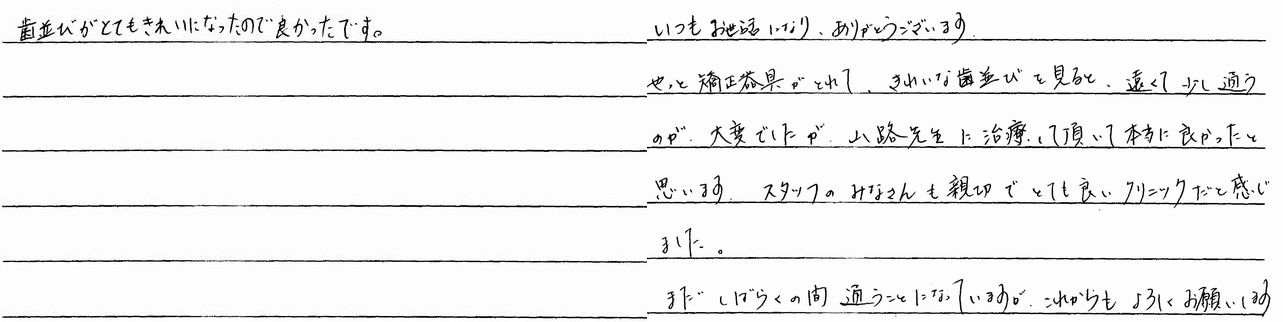 歯並びがとてもきれいになったので良かったです。
いつもお世話になり、ありがとうございます。
やっと矯正器具がとれて、きれいな歯並びを見ると、遠くて少し通う
のが、大変でしたが、山路先生に治療して頂いて本当に良かったと
思います。スタッフのみなさんも親切でとても良いクリニックだと感じ
ました。
まだしばらくの間通うことになっていますが、これからもよろしくお願いします